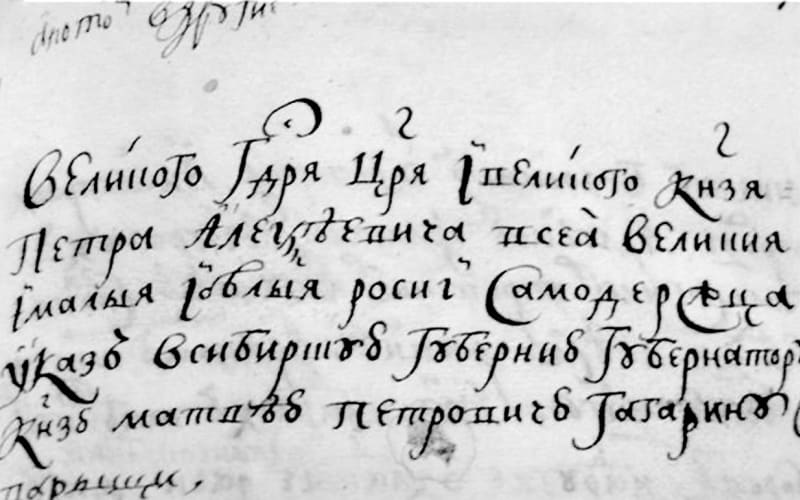 Великого Гдря Цря Iвеликого Кнзя
Петра Алеѯѣевича всеа великия
Iмалыя Iбѣлыя росиi Самодержца
указъ всибирскую губернию губернатору
Кнзю матвѣю Петровичю Гагарину